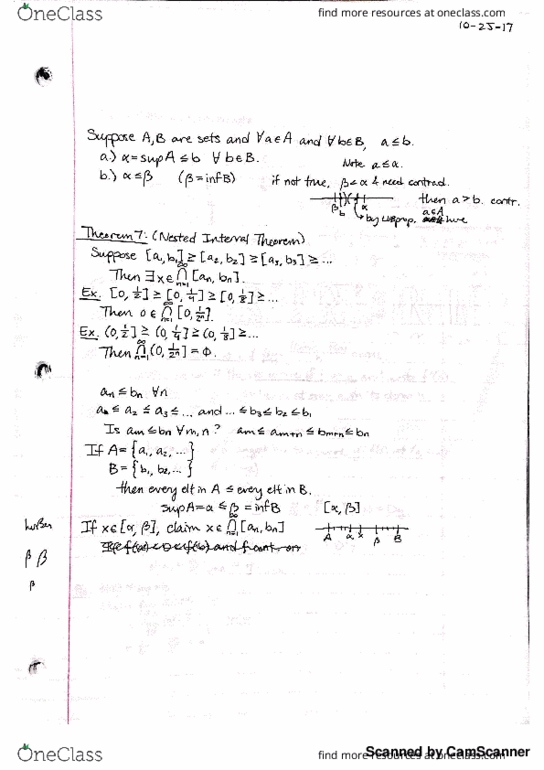 OneClass
find more resources at oneclass.com
10-25-17
Suppose A,B are sets and ∀a∈A and ∀b∈B, a≤b.
a.) α=supA≤b ∀b∈B.
Note a≤α.
b.) α≤β (β=infB) if not true, β<α & need contrad.
then a>b. contr.
β b α
a∈A
by LUB prop.
here
Theorem 7: (Nested Interval Theorem)
Suppose [a₁,b₁]≥[a₂,b₂]≥[a₃,b₃]≥...
Then ∃x∈∩ₙ₌₁^∞[aₙ,bₙ].
Ex. [0,½]≥[0,¼]≥[0,⅛]≥...
Then 0∈∩ₙ₌₁^∞[0,1/2ⁿ].
Ex. (0,½]≥(0,¼]≥(0,⅛]≥...
Then ∩ₙ₌₁^∞(0,1/2ⁿ]=Φ.
aₙ≤bₙ ∀n
a₁≤a₂≤a₃≤... and ...≤b₃≤b₂≤b₁
Is aₘ≤bₙ ∀m,n? aₘ≤aₘ₊ₙ≤bₘ₊ₙ≤bₙ
If A={a₁,a₂,...}
B={b₁,b₂,...}
then every elt in A≤every elt in B.
supA=α≤β=infB [α,β]
If x∈[α,β], claim x∈∩ₙ₌₁^∞[aₙ,bₙ]
A α x β B
β β
β
OneClass
find more resources at oneclass.com
Scanned by CamScanner